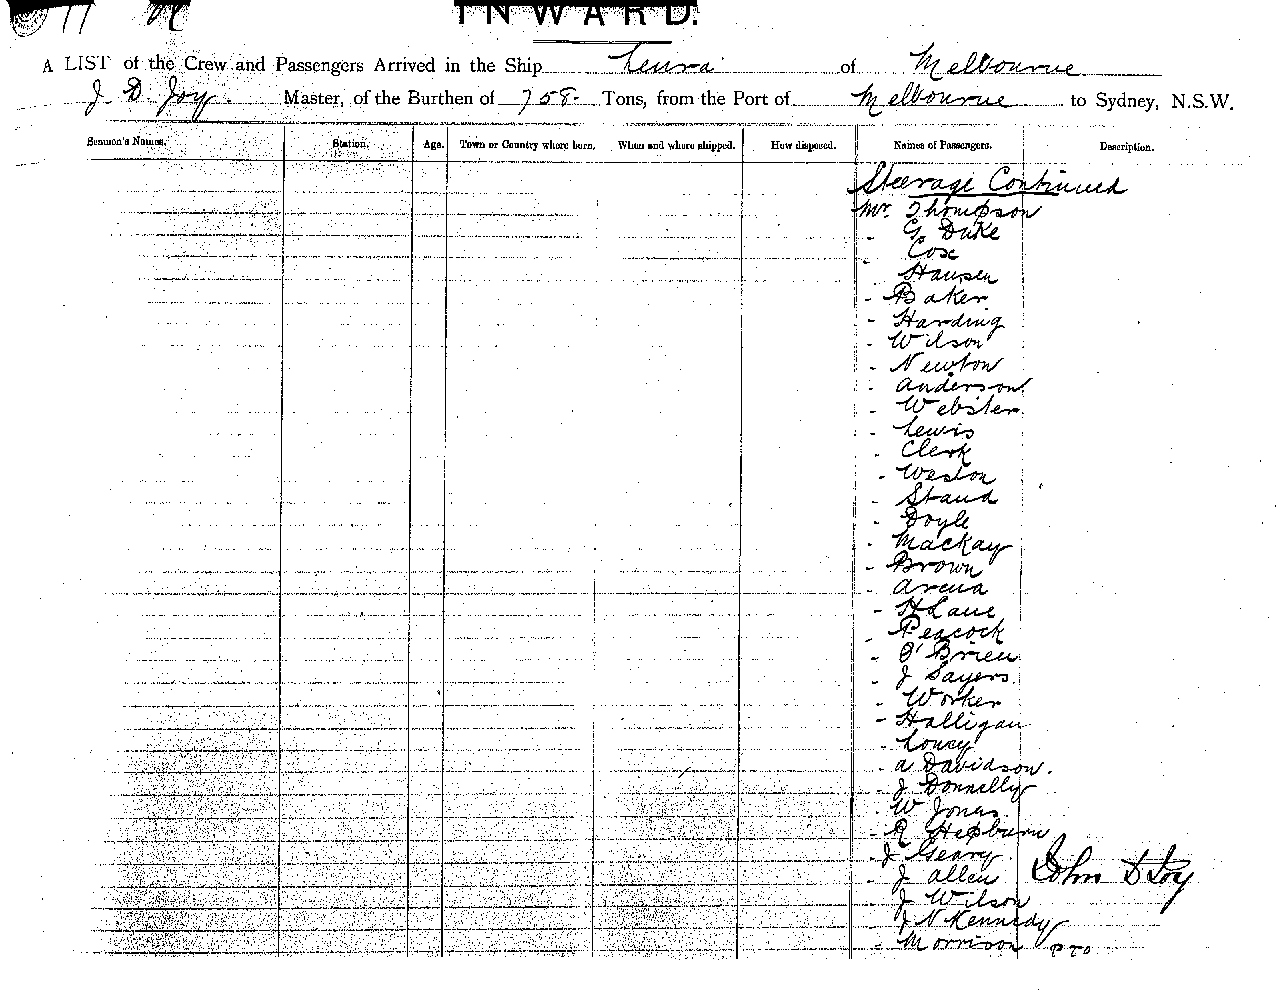 INWARD.
A LIST of the Crew and Passengers Arrived in the Ship Leura of Melbourne
J. D. Joy. Master, of the Burthen of 758 Tons, from the Port of Melbourne to Sydney, N.S.W.
Seamen's Names. Station. Age. Town or Country where born. When and where shipped. How disposed. Names of Passengers. Description.
Steerage Continued
Mr. Thompson
" G Duke
" Cox
Hansen
- Baker
- Harding
- Wilson
- Newton
- Anderson
- Webster
- Lewis
- Clerk
- Weston
- Staud
- Doyle
- Mackay
- Brown
- Arena
- H Lane
- Peacock
- O'Brien
- J Sayers
- Worker
- Halligan
- Loney
- A Davidson.
- J Donnelly
- W Jonas
- R Hepburn
- J Geary
- J Allen John D Joy
- J Wilson
- J N Kennedy
- Morrison PTO